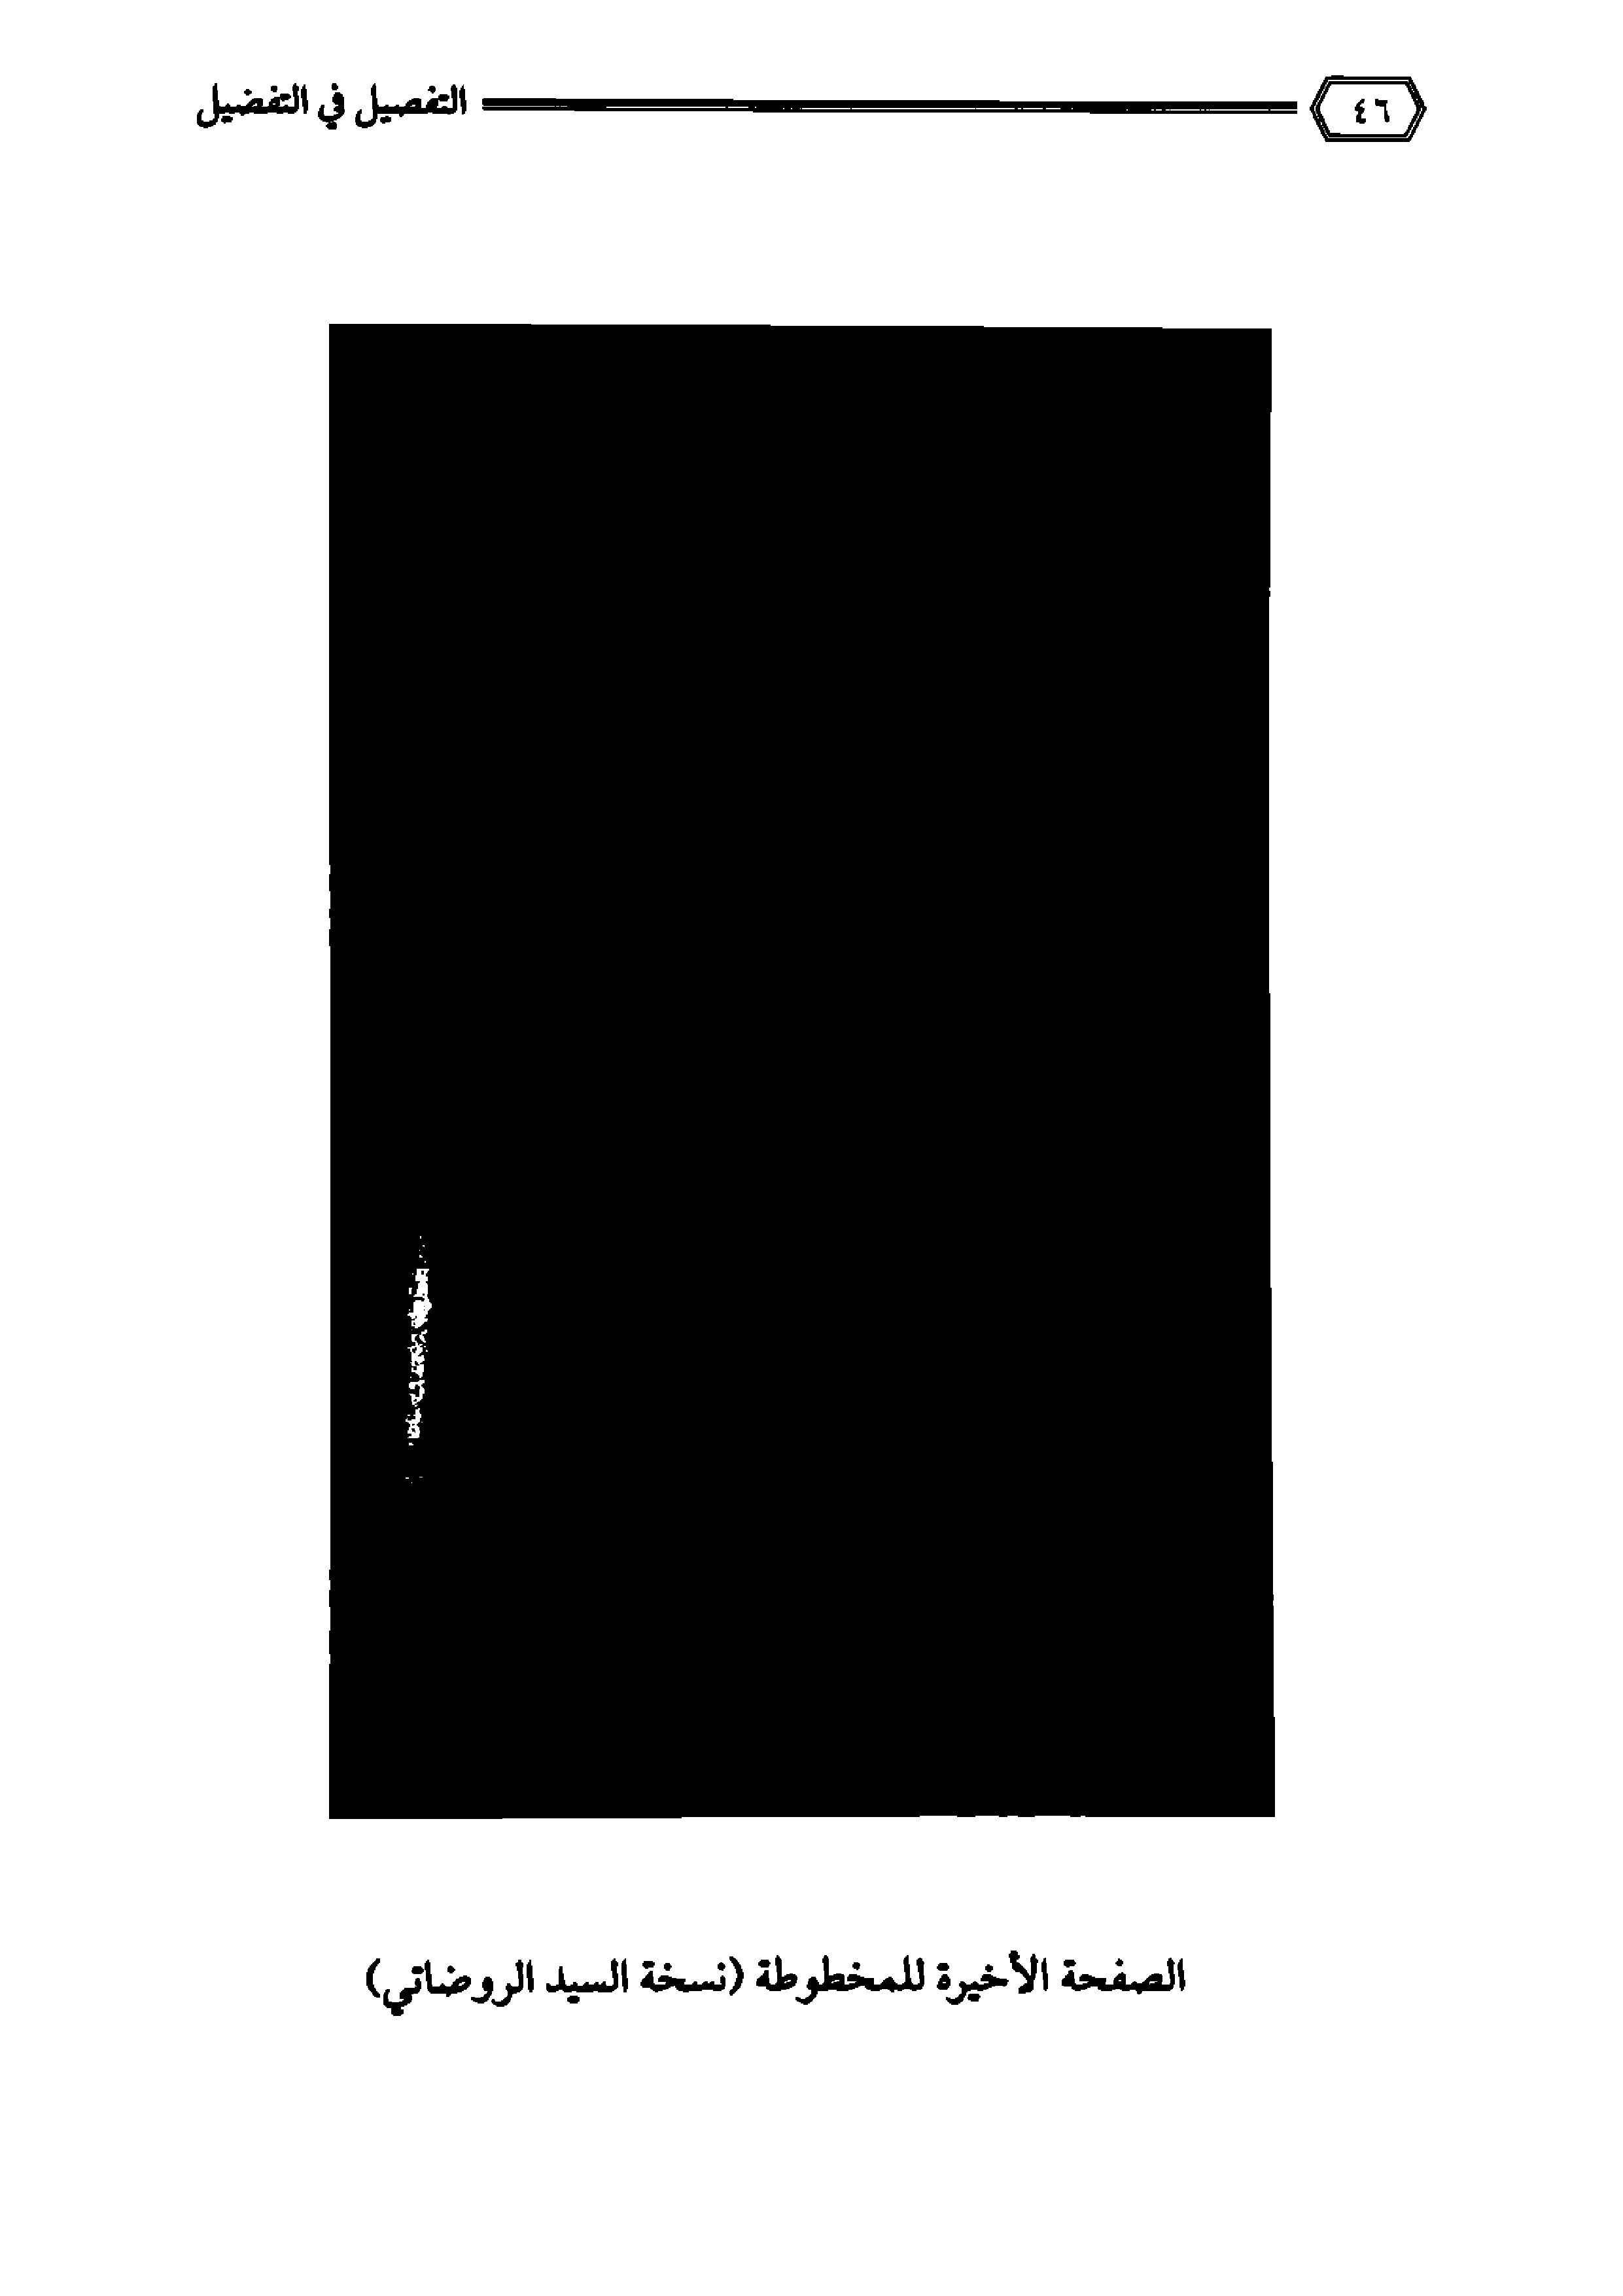 ٤٦ التفصيل في التفضيل
الصفحة الأخيرة للمخطوطة (نسخة السيد الروضاتي)